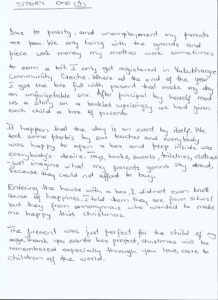 STORY ONE (1)
Due to poverty and unemployment my parents
are poor. We only living with the grannies and
piece job money my mother work sometimes
to earn a bit. I only got registered in
Community Creche. Where at the end of the year
I got the box full with present that make my day
an unforgetable one. After principal by herself read
us a story on a booklet uprisingly as had given
each child a box of presents.
It happens that the day is an eerd by itself. We
took some photo's by our teacher and everybody
was happy to open a box and peep inside was
everybody's desire. toys, books, sweets, toiletries, clothes
just imagine what my parents gonna say about,
because they could not afford to buy.
Entering the house with a box, I did not even knew
cause of happiness. I told them they are from school
but they from anonymous who wanted to make
me happy this christmas.
The present was just perfect for the child of my
age. Thank you santa box project, christmas will be
remembered especially through you love, care to
children of the world.